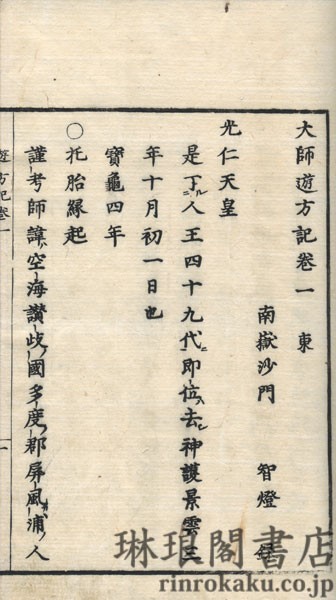 大師遊方記卷一　東
南嶽沙門　智燈
光仁天皇
是丁人王四十九代即位去神護景雲三
年十月初一日也
寶龜四年
○托胎緣起
謹考師諱空海讃岐國多度郡屏風浦人
遊方記卷一
一
琳琅閣書店
rinrokaku.co.jp